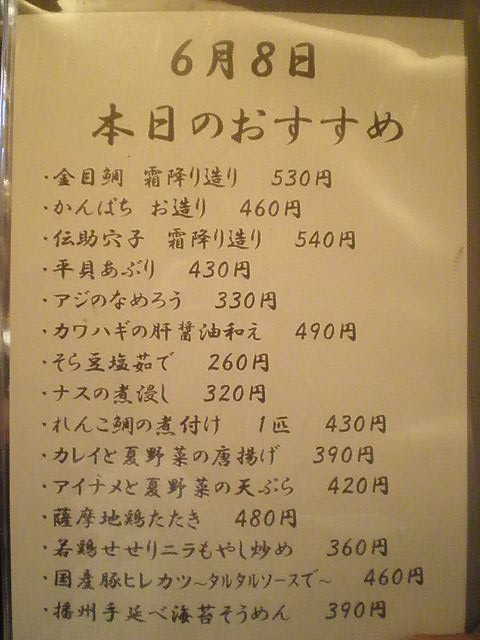 6月8日
本日のおすすめ
・金目鯛 霜降り造り 530円
・かんぱち お造り 460円
・伝助穴子 霜降り造り 540円
・平貝あぶり 430円
・アジのなめろう 330円
・カワハギの肝醤油和え 490円
・そら豆塩茹で 260円
・ナスの煮浸し 320円
・れんこ鯛の煮付け 1匹 430円
・カレイと夏野菜の唐揚げ 390円
・アイナメと夏野菜の天ぷら 420円
・薩摩地鶏たたき 480円
・若鶏せせりニラもやし炒め 360円
・国産豚ヒレカツ～タルタルソースで～ 460円
・播州手延べ海苔そうめん 390円